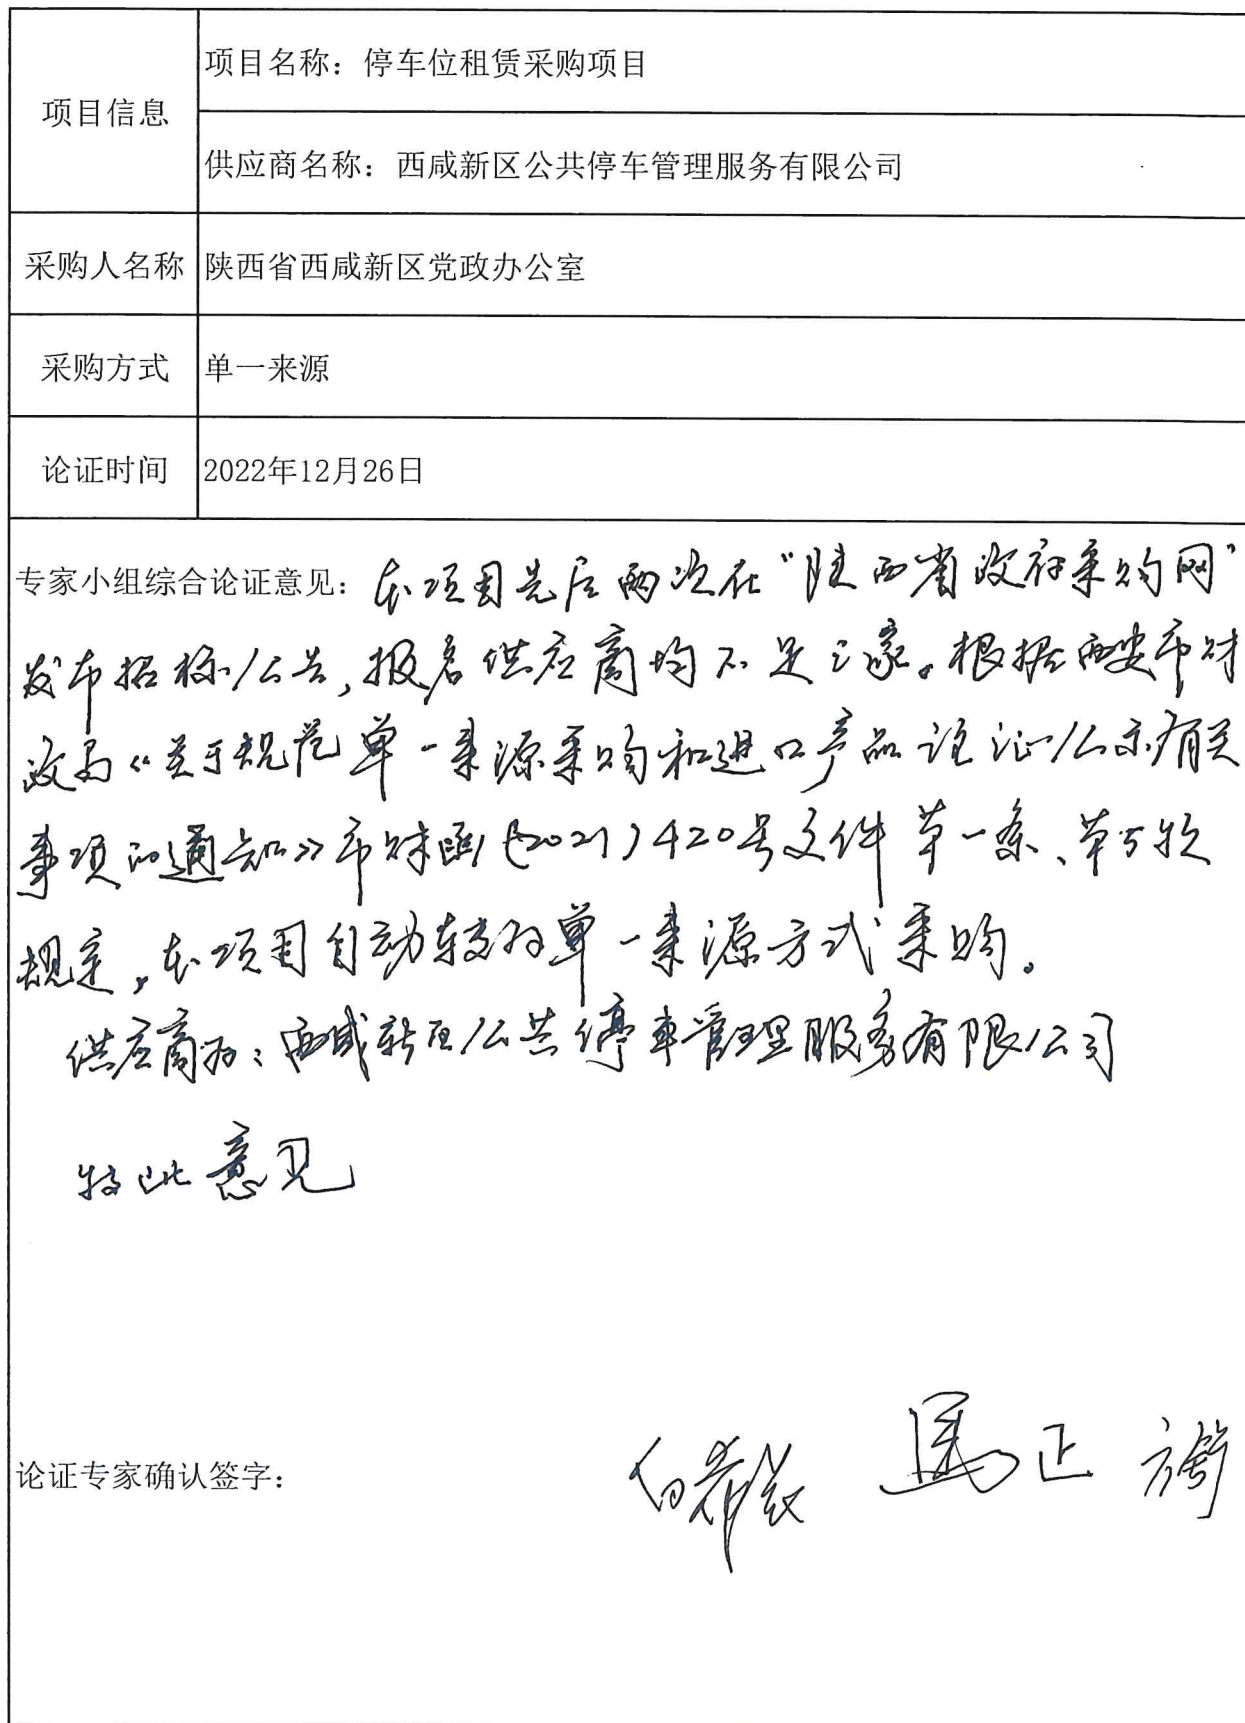 项目信息
项目名称：停车位租赁采购项目
供应商名称：西咸新区公共停车管理服务有限公司
采购人名称 陕西省西咸新区党政办公室
采购方式 单一来源
论证时间 2022年12月26日
专家小组综合论证意见：本项目先后两次在“陕西省政府采购网”
发布招标公告，报名供应商均不足三家。根据西安市财
政局《关于规范单一来源采购和进口产品论证公示有关
事项的通知》市财函（2021）420号文件第一条、第5款
规定，本项目自动转为单一来源方式采购。
供应商为：西咸新区公共停车管理服务有限公司
特此意见
论证专家确认签字：